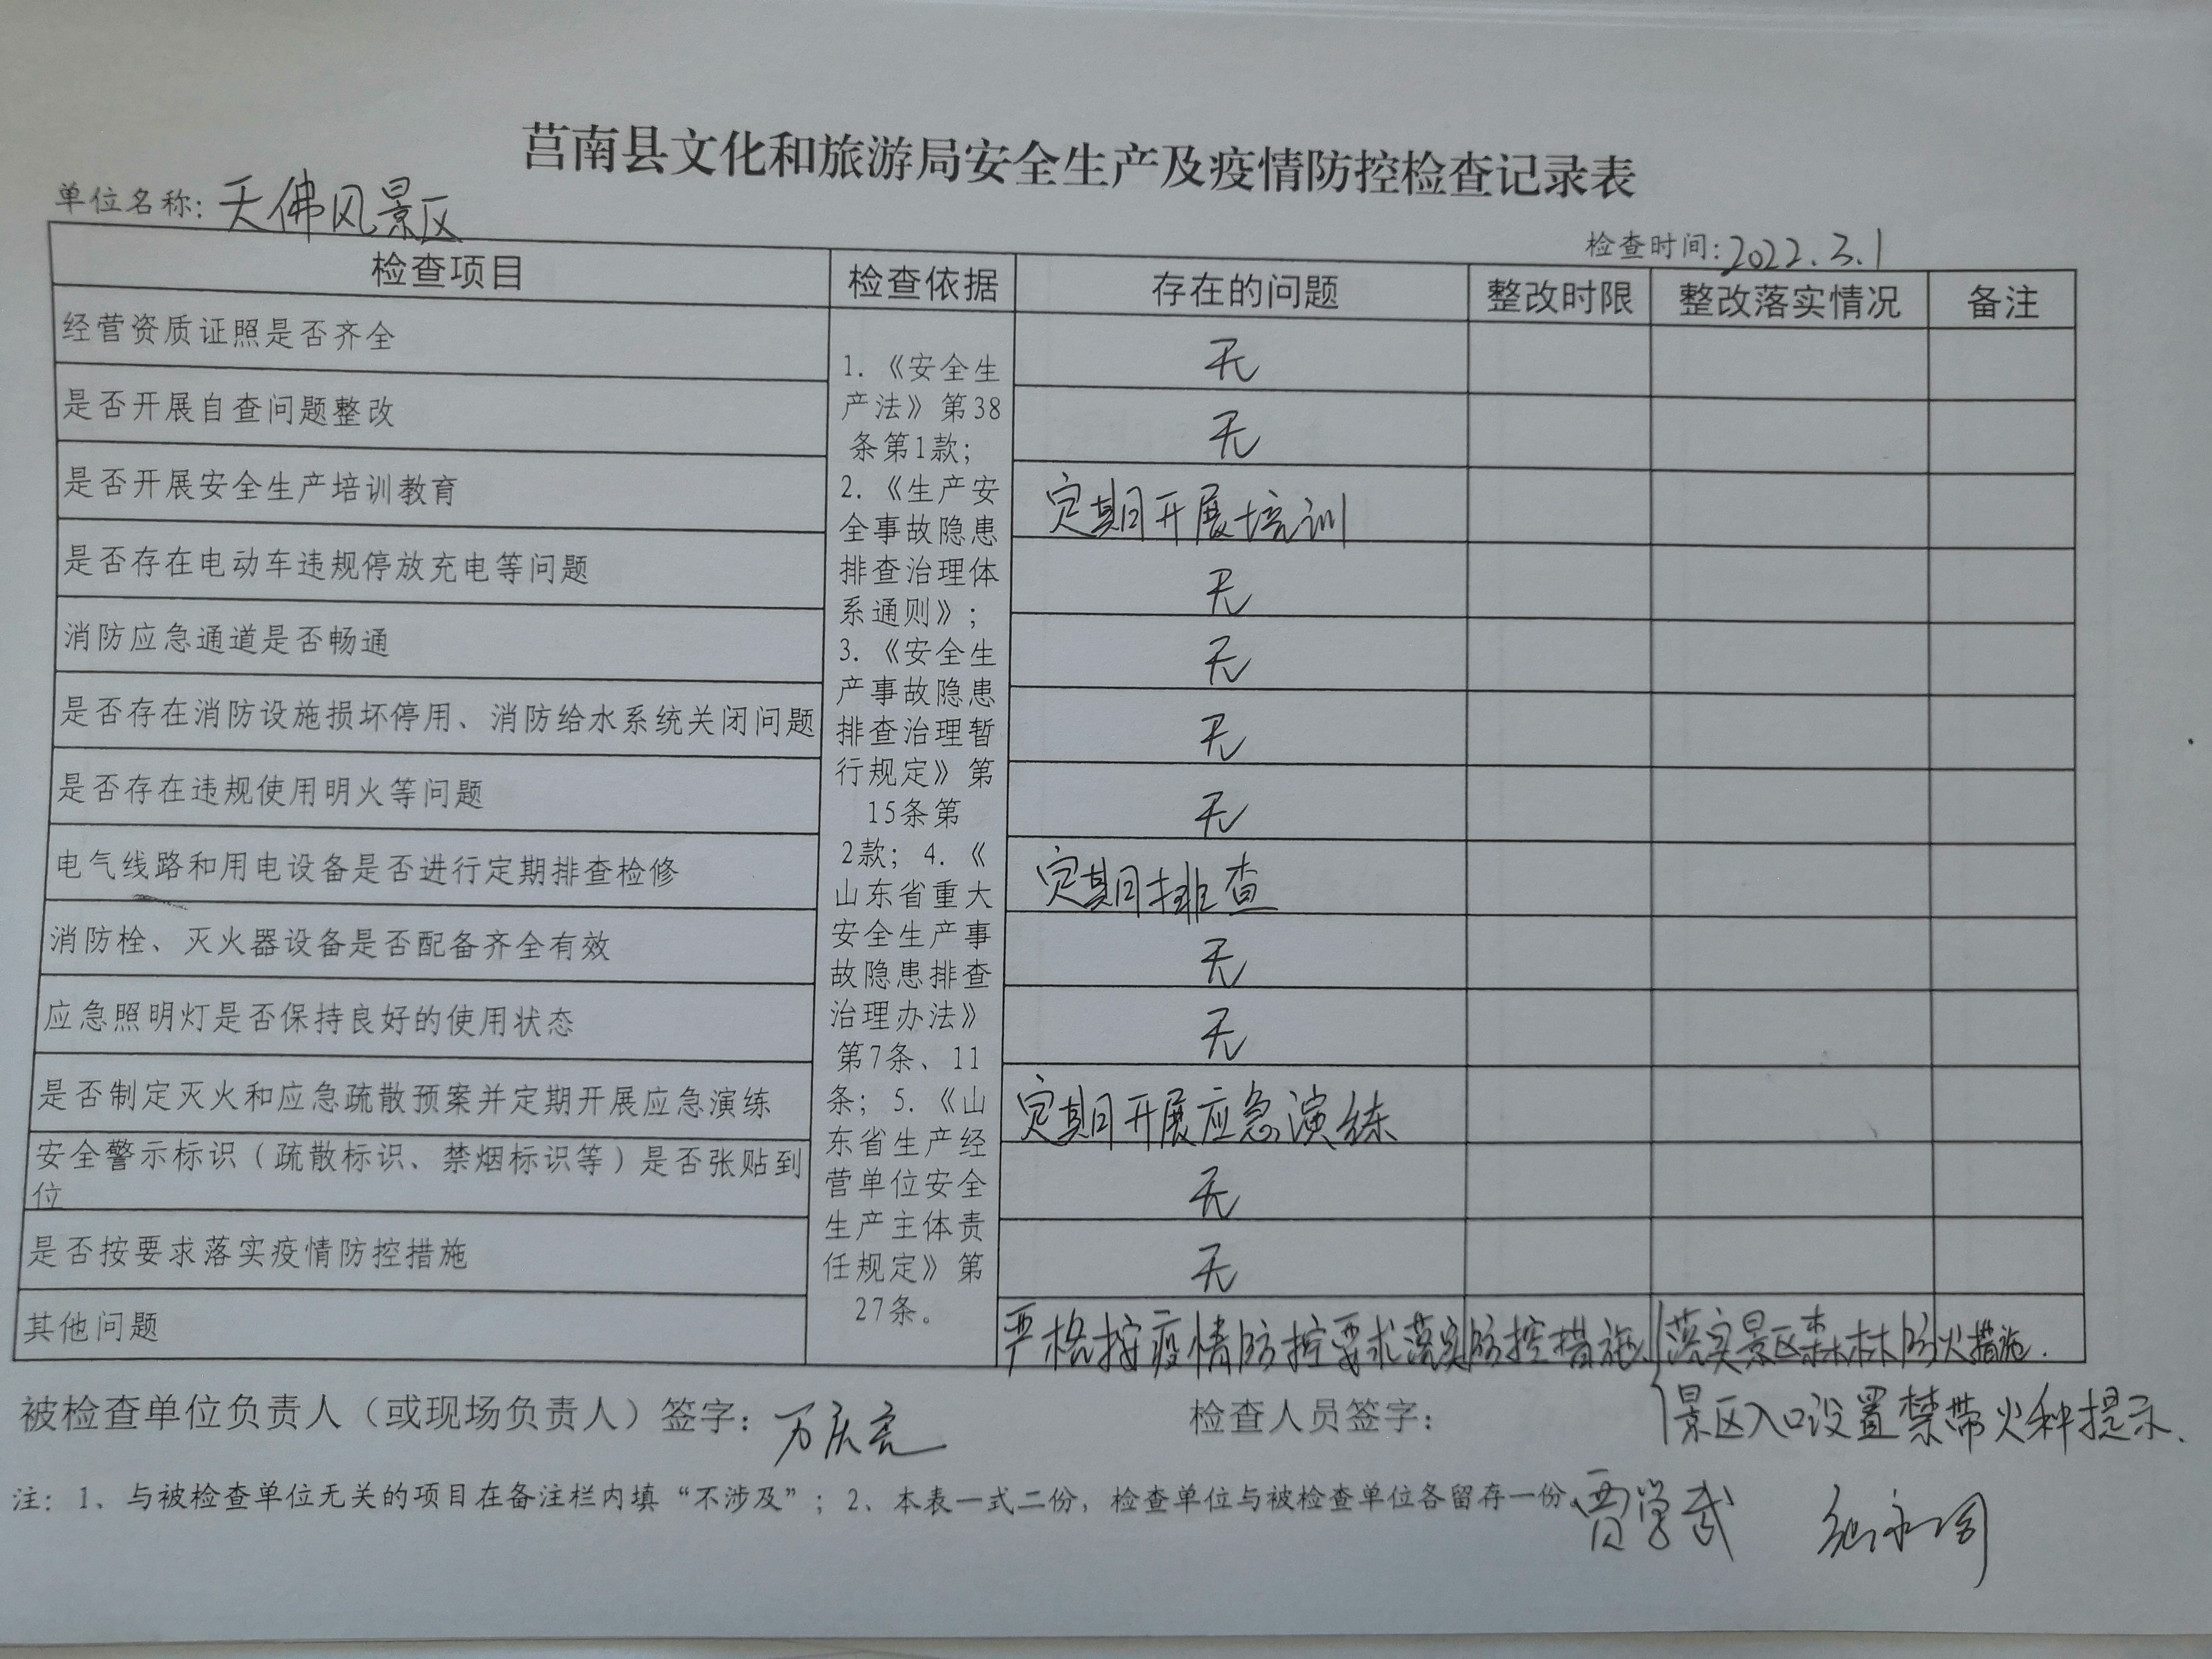 莒南县文化和旅游局安全生产及疫情防控检查记录表
单位名称：天佛风景区
检查时间：2022.3.1
检查项目 检查依据 存在的问题 整改时限 整改落实情况 备注
经营资质证照是否齐全 无
是否开展自查问题整改 无
是否开展安全生产培训教育 定期开展培训
是否存在电动车违规停放充电等问题 无
消防应急通道是否畅通 无
是否存在消防设施损坏停用、消防给水系统关闭问题 无
是否存在违规使用明火等问题 无
电气线路和用电设备是否进行定期排查检修 定期排查
消防栓、灭火器设备是否配备齐全有效 无
应急照明灯是否保持良好的使用状态 无
是否制定灭火和应急疏散预案并定期开展应急演练 定期开展应急演练
安全警示标识（疏散标识、禁烟标识等）是否张贴到
位 无
是否按要求落实疫情防控措施 无
其他问题 严格按疫情防控要求落实防控措施、落实景区森林防火措施.
1.《安全生
产法》第38
条第1款；
2.《生产安
全事故隐患
排查治理体
系通则》；
3.《安全生
产事故隐患
排查治理暂
行规定》第
15条第
2款；4.《
山东省重大
安全生产事
故隐患排查
治理办法》
第7条、11
条；5.《山
东省生产经
营单位安全
生产主体责
任规定》第
27条。
景区入口设置禁带火种提示、
被检查单位负责人（或现场负责人）签字：万庆亮
检查人员签字：
贾学武
注：1、与被检查单位无关的项目在备注栏内填“不涉及”；2、本表一式二份，检查单位与被检查单位各留存一份。